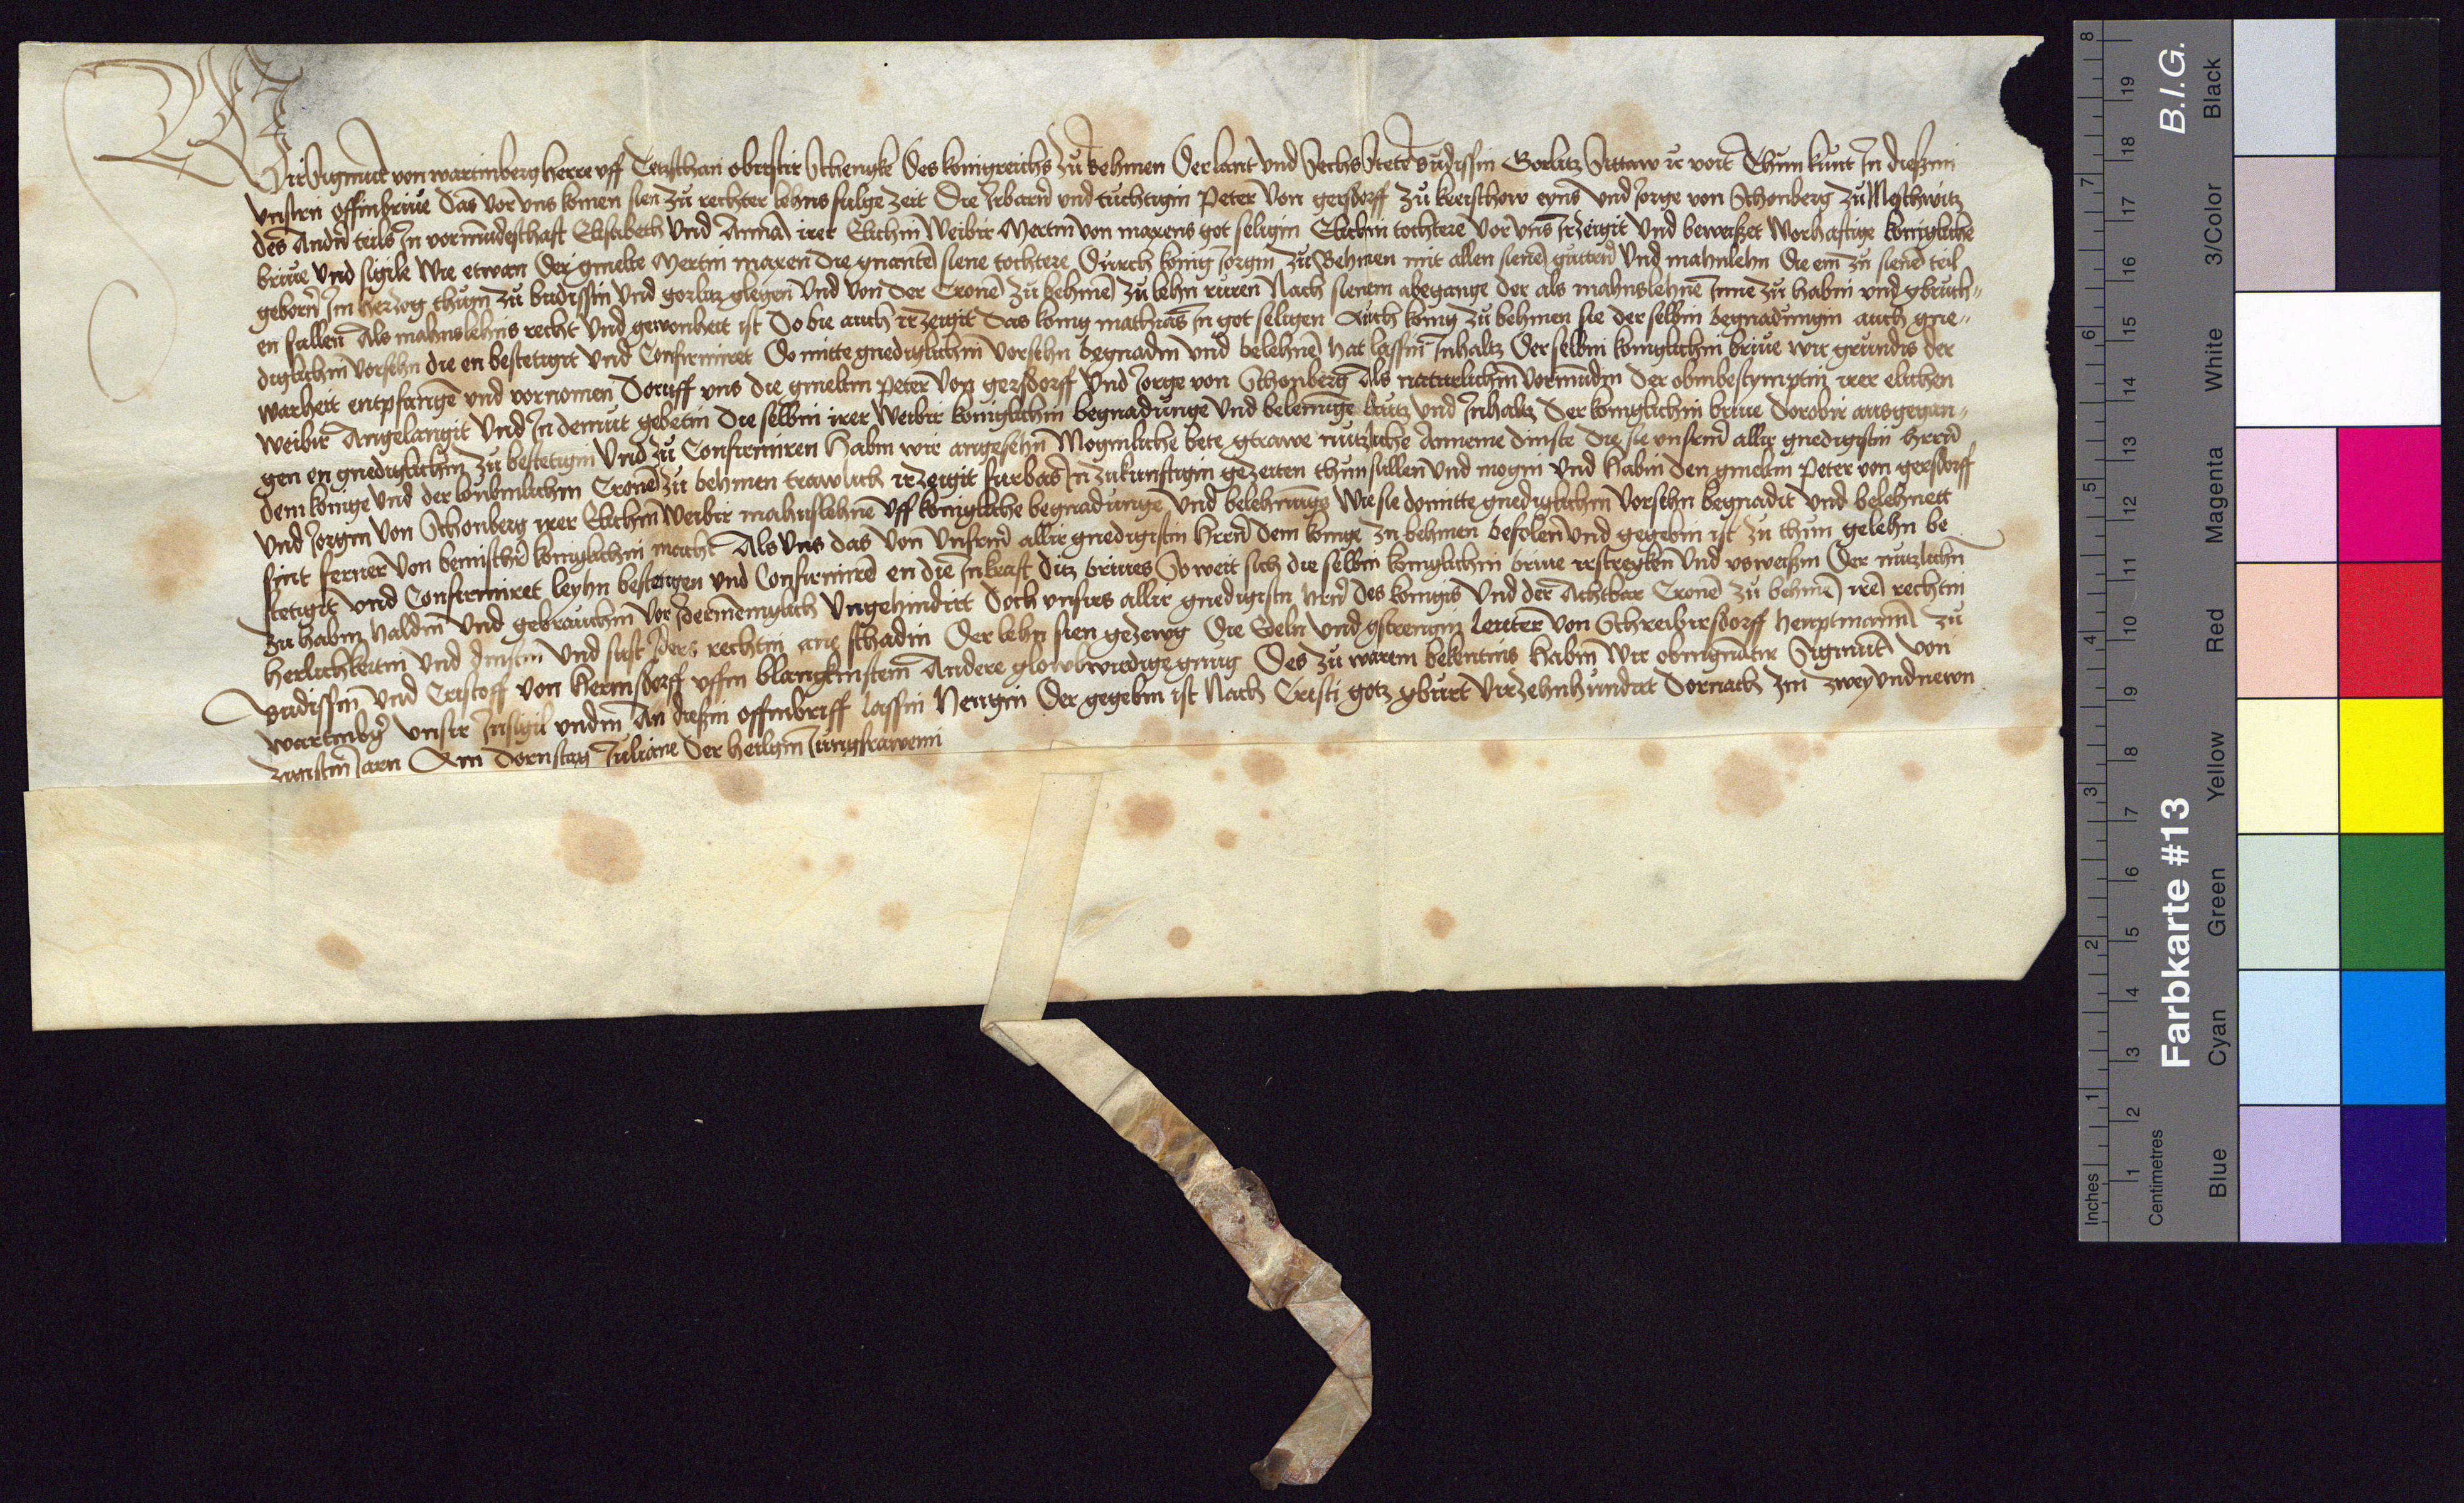 Wir Sigmund von wartinberg herre uff Tetzschan obirstir Schengke des konigreichs zu Behmen der lant und Sechs Stete Budissin Gorlitz Sittaw ꝛc voit Thun kunt In dießim
unsirn offinbriue das vor uns komen sien zu rechter lehns fulge zeit die Irbarn und tuchtigin Peter von gerßdorff zu kreischow eyns und Jorge von Schonberg zu Moschwitz
des Andn teils In vormundeschaft Elisabeth und Anna irer Elichin Weibir Mertin von maxens got seligin Elichin tochtere vor uns Irzeigit und beweißet Worhaftige konigliche
briue und sigile Wie etwan der gmelte Mertin maxen die gnanten siene tochtere Durch konig Jorgin zu Behmen mit allen sienen guttern und mahnlehn die em zu sienem teil
geborn Im herzogthum zu budissin und gorlitz glegen und von der Crone zu behmen zu lehn ruren Nach sienem abegange der als mahnslehne Inne zu habin und gbruch„
en sallen Als mahnslehns recht und gewonheit ist Do bie auch irzeigit das konig mathias In got seligen Auch konig zu behmen sie der selbin begnadungin auch gne„
diglichin vorsehn die en bestetigit und Confirmiret Do mitte gnediglichin vorsehn begnadin und belehnen hat lassin Inhaltz der selbin koniglichin briue wir grundis der
warheit entpfangen und vornomen Doruff uns die gmeltin Peter von gerßdorff und Jorge von Schonberg Als naturlichin vormunden der obinbestymptin irer elichen
weibir Angelangit und In demut gebetin die selbin irer weibir koniglichin begnadunge und belenunge lautz und Inhaltz der koniglichin briue dorobir ausgegan„
gen en gnediglichin zu bestetigin und zu Confirmiren Habin wir angesehn Mogenliche bete gtrawe nutzliche Anneme dinste die sie unsirm allir gnedigistin herrn
dem konige und der loubinlichin Crone zu behmen trawlich irzeigit furbas In zukunftigin gezeiten thun sullen und mogin und habin den gmeltin Peter von gerßdorff
und Jorgin von Schonberg irer Elichin Weibir mahnslehne uff konigliche begnadunge und belehnunge Wie sie domitte gnediglichin vorsehn begnadit und belehnett
sint ferner von bemischer koniglichin macht Als uns das von unsirm allir gnedigistin Herrn dem konige zu behmen befolen und gegebin ist zu thun gelehn be
stetigit und Confirmiret leyhn bestetigen und Confirmiren en die Inkraft ditz briues So weit sich die selbin koniglichin briue irstregken und uswaißin Der nutzlichn
zu habin haldin und gebrauchin vor Idermeniglich Ungehindirt Doch unsirs allir gnedigistin hrn des konigis und der Achtbar Crone zu behmen iren rechtin
herlichkeitin und dinstin und sust Iders rechtin ane schadin Der lehn sien gezewg Die Edeln und gstrengin leuter von Schreibirsdorff heuptmann zu
Budissin und Cristoff von Hermsdorff uffin blangkinstein Andere glowbwirdige gnug Des zu warem bekentnis habin wir obingnantir Sigmund von
wartinbg unsir Insigil undin An dießin offinbriff lassin Hengin Der gegebin ist Nach Cristi gotz gburt virzehnhundirt Dornach Im zweyundnewn
zigistin Jarn Am Dornstag Juliane der heiligin Jungkfrawenn
Inches
Centimetres
Farbkarte #13
B.I.G.
Blue Cyan Green Yellow Red Magenta White 3/Color Black
1 2 3 4 5 6 7 8
1 2 3 4 5 6 7 8 9 10 11 12 13 14 15 16 17 18 19